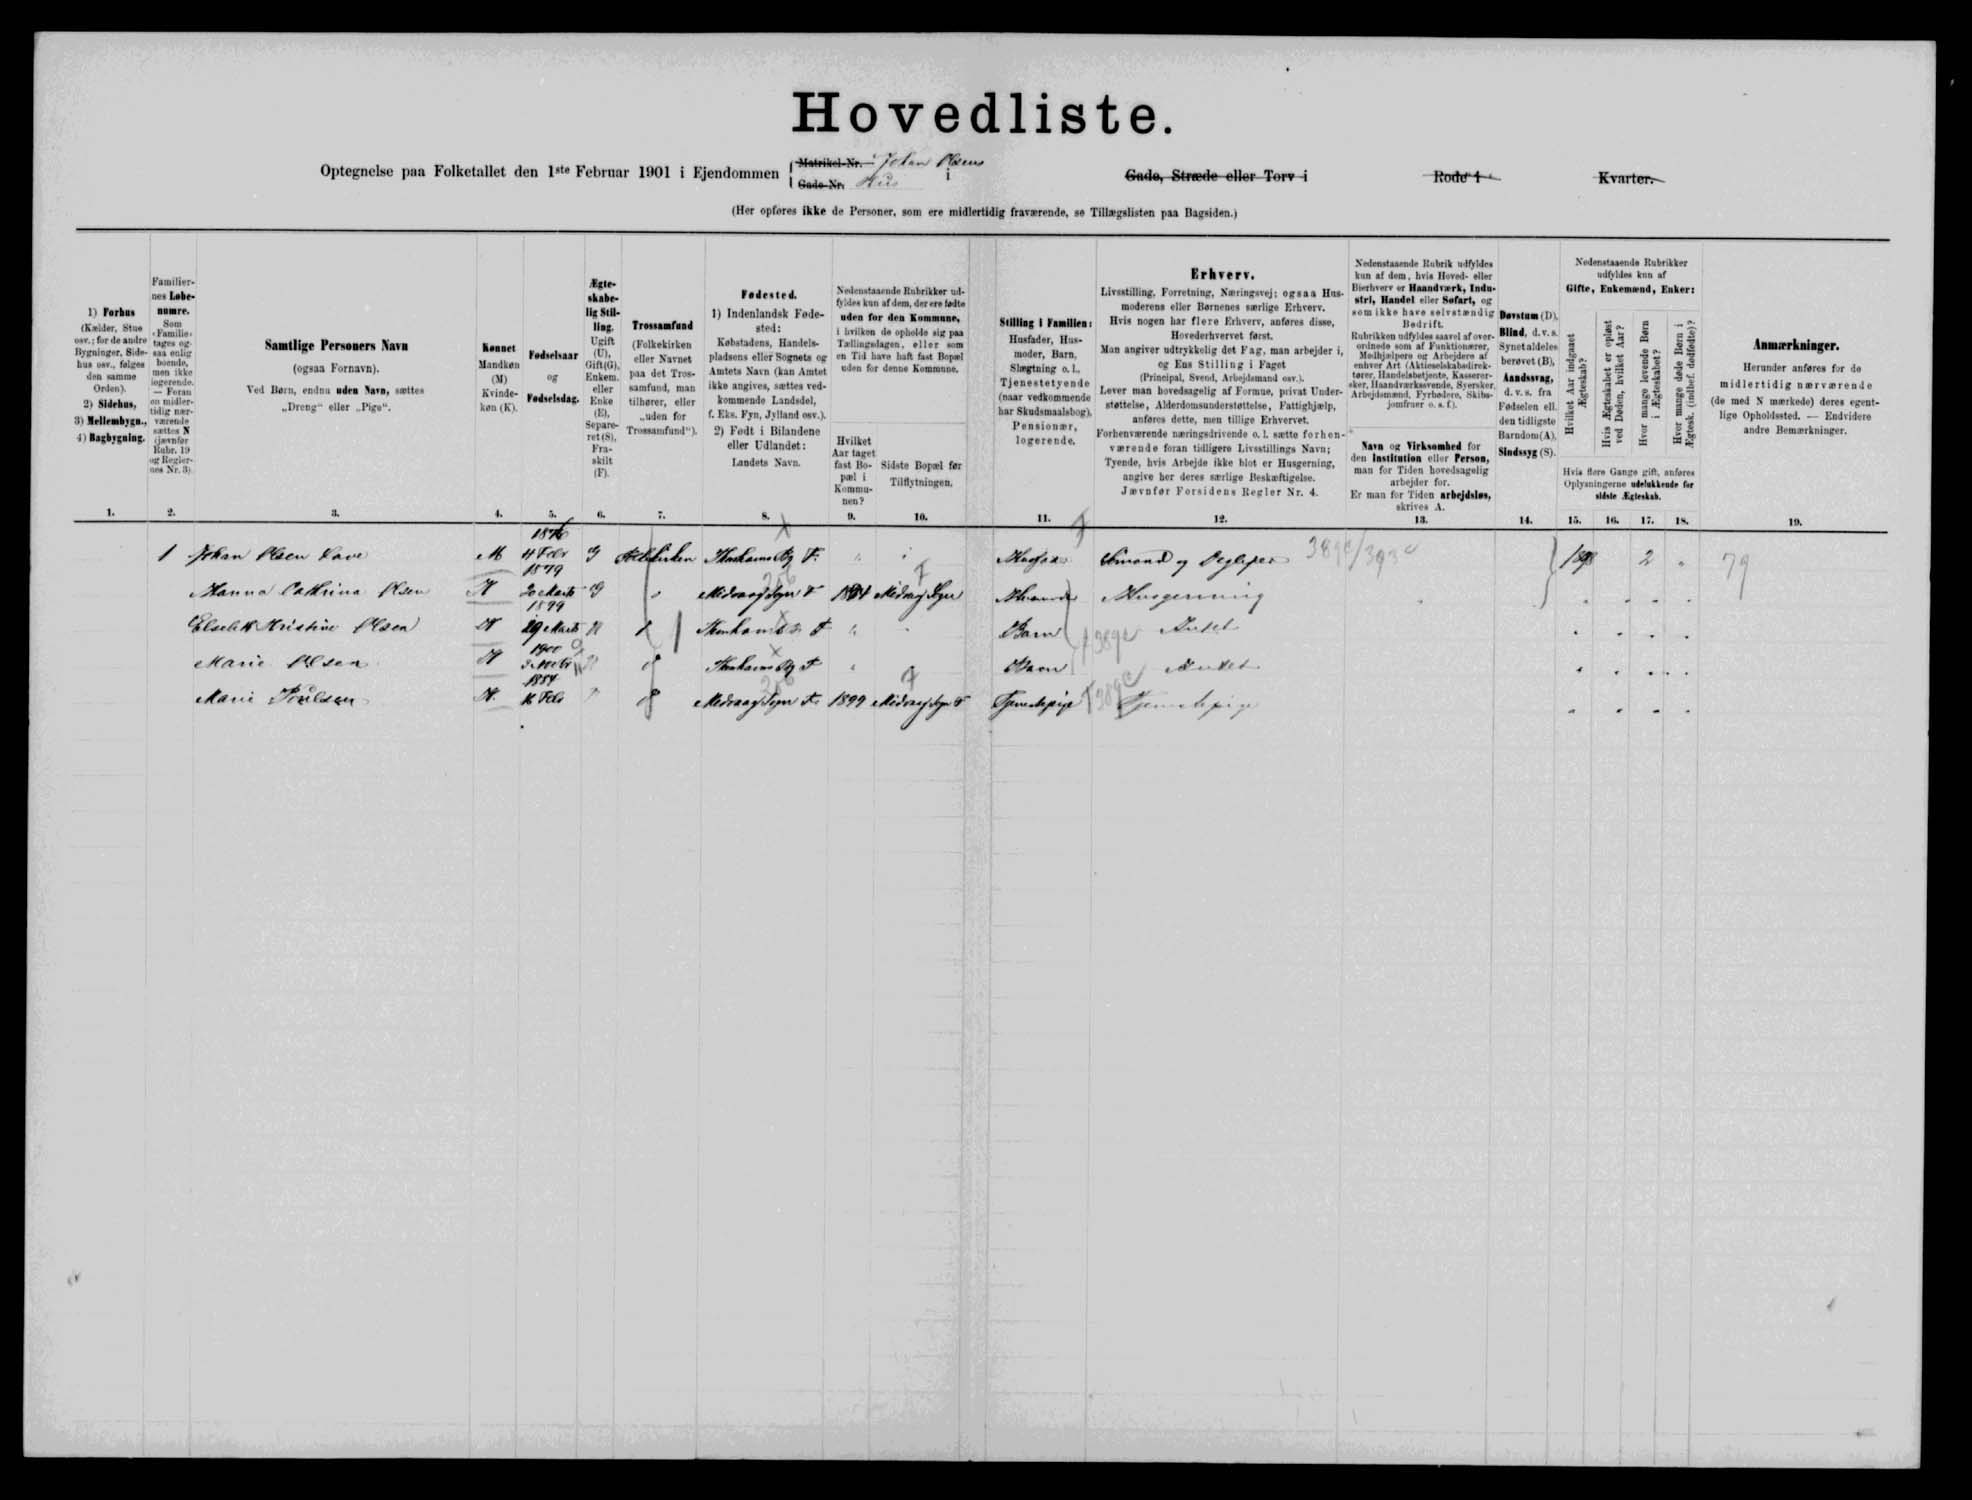 Hovedliste.
Optegnelse paa Folketallet den 1ste Februar 1901 i Ejendommen
Matrikel-Nr. Johan Olsens
Gade-Nr. Hus i
Gade, Stræde eller Torv i
Rode 1
Kvarter.
(Her opføres ikke de Personer, som ere midlertidig fraværende, se Tillægslisten paa Bagsiden.)
1) Forhus
(Kælder, Stue
osv.; for de andre
Bygninger, Side-
hus osv., følges
den samme
Orden).
2) Sidehus,
3) Mellembygn.,
4) Bagbygning.
1.
Familier-
nes Løbe-
numre.
Som
„Familie“
tages og-
saa enlig
boende,
men ikke
logerende.
— Foran
en midler-
tidig nær-
værende
sættes N
(jævnfør
Rubr. 19
og Regler-
nes Nr. 3).
2.
Samtlige Personers Navn
(ogsaa Fornavn).
Ved Børn, endnu uden Navn, sættes
„Dreng“ eller „Pige“.
3.
Kønnet
Mandkøn
(M)
Kvinde-
køn (K).
4.
Fødselsaar
og
Fødselsdag.
5.
Ægte-
skabe-
lig Stil-
ling.
Ugift
(U),
Gift(G),
Enkem.
eller
Enke
(E),
Separe-
ret (S),
Fra-
skilt
(F).
6.
Trossamfund
(Folkekirken
eller Navnet
paa det Tros-
samfund, man
tilhører, eller
„uden for
Trossamfund“).
7.
Fødested.
1) Indenlandsk Føde-
sted:
Købstadens, Handels-
pladsens eller Sognets og
Amtets Navn (kan Amtet
ikke angives, sættes ved-
kommende Landsdel,
f. Eks. Fyn, Jylland osv.).
2) Født i Bilandene
eller Udlandet:
Landets Navn.
8.
Nedenstaaende Rubrikker ud-
fyldes kun af dem, der ere fødte
uden for den Kommune,
i hvilken de opholde sig paa
Tællingsdagen, eller som
en Tid have haft fast Bopæl
uden for denne Kommune.
Hvilket
Aar taget
fast Bo-
pæl i
Kommu-
nen?
9.
Sidste Bopæl før
Tilflytningen.
10.
Stilling i Familien:
Husfader, Hus-
moder, Barn,
Slægtning o. l.,
Tjenestetyende
(naar vedkommende
har Skudsmaalsbog),
Pensionær,
logerende.
11.
Erhverv.
Livsstilling, Forretning, Næringsvej; ogsaa Hus-
moderens eller Børnenes særlige Erhverv.
Hvis nogen har flere Erhverv, anføres disse,
Hovederhvervet først.
Man angiver udtrykkelig det Fag, man arbejder i,
og Ens Stilling i Faget
(Principal, Svend, Arbejdsmand osv.).
Lever man hovedsagelig af Formue, privat Under-
støttelse, Alderdomsunderstøttelse, Fattighjælp,
anføres dette, men tillige Erhvervet.
Forhenværende næringsdrivende o. l. sætte forhen-
værende foran tidligere Livsstillings Navn;
Tyende, hvis Arbejde ikke blot er Husgerning,
angive her deres særlige Beskæftigelse.
Jævnfør Forsidens Regler Nr. 4.
12.
Nedenstaaende Rubrik udfyldes
kun af dem, hvis Hoved- eller
Bierhverv er Haandværk, Indu-
stri, Handel eller Søfart, og
som ikke have selvstændig
Bedrift.
Rubrikken udfyldes saavel af over-
ordnede som af Funktionærer,
Medhjælpere og Arbejdere af
enhver Art (Aktieselskabsdirek-
tører, Handelsbetjente, Kasserer-
sker, Haandværkssvende, Syersker,
Arbejdsmænd, Fyrbødere, Skibs-
jomfruer o. s. f.).
Navn og Virksomhed for
den Institution eller Person,
man for Tiden hovedsagelig
arbejder for.
Er man for Tiden arbejdsløs,
skrives A.
13.
Døvstum (D),
Blind, d. v. s.
Synet aldeles
berøvet (B),
Aandssvag,
d. v. s. fra
Fødselen ell.
den tidligste
Barndom(A),
Sindssyg (S).
14.
Nedenstaaende Rubrikker
udfyldes kun af
Gifte, Enkemænd, Enker:
Hvilket Aar indgaaet
Ægteskab?
Hvis Ægteskabet er opløst
ved Døden, hvilket Aar?
Hvor mange levende Børn
i Ægteskabet?
Hvor mange døde Børn i
Ægtesk. (indbef. dødfødte)?
Hvis flere Gange gift, anføres
Oplysningerne udelukkende for
sidste Ægteskab.
15. 16. 17. 18.
Anmærkninger.
Herunder anføres for de
midlertidig nærværende
(de med N mærkede) deres egent-
lige Opholdssted. — Endvidere
andre Bemærkninger.
19.
1 Johan Olsen M 1876 4 Febr G Folkekirken By F. 389c/393c 2 79
Hanna Cathrina Olsen K 1879 20 Marts G 256 Midvaag Sogn F Midvaag Sogn Husgerning
Elsebeth Kristine Olsen K 1899 29 Marts F Barn 389c
Marie Olsen K 1900 By F Barn
Marie Poulsen K 1884 16 Febr 256 Midvaag Sogn F. 1899 Midvaag Sogn F Tjenestepige 389c Tjenestepige